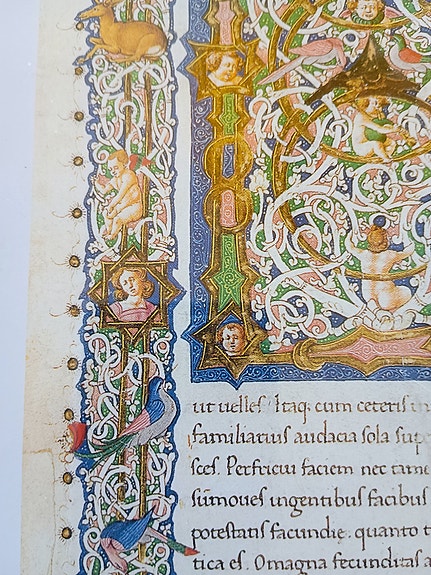 ut uelles. Itaq; cum ceteris in
familiarius audacia sola sup
sces. Perfricui faciem nec tame
sūmoues ingentibus facibus
potestatis facundie. quanto t
tica es. O magna fecunditas a